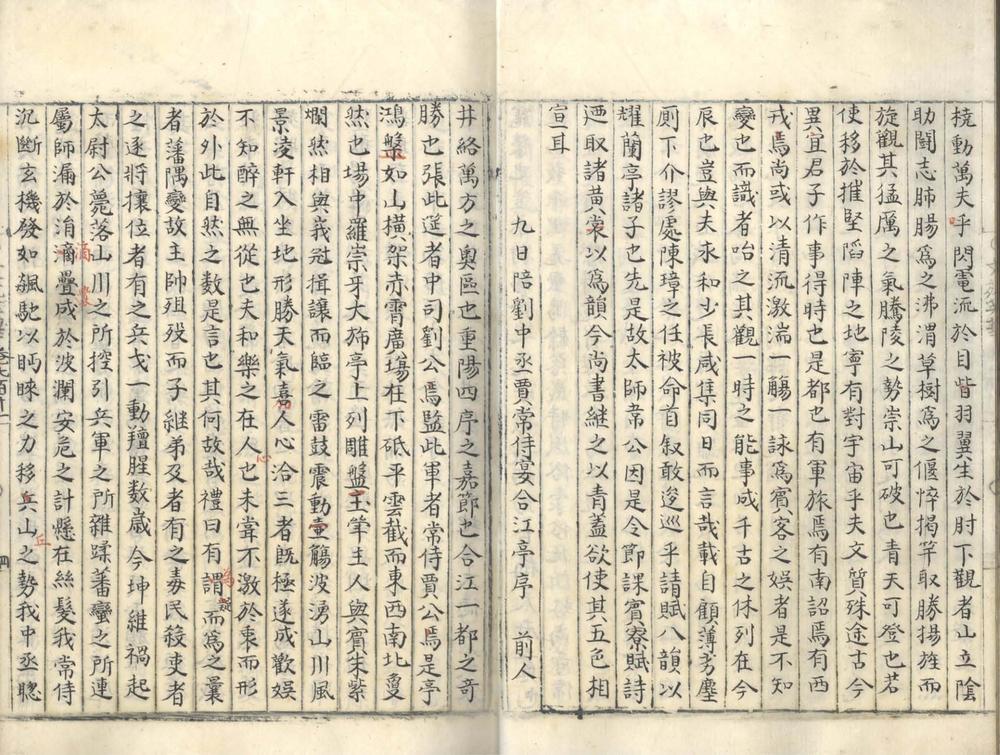 橈動萬夫乎閃電流於目眥羽翼生於肘下觀者山立陰
助鬪志肺腸爲之沸渭草樹爲之偃悴揭竿取勝揚旌而
旋觀其猛厲之氣騰陵之勢崇山可破也青天可登也若
使移於摧堅陷陣之地寧有對宇宙乎夫文質殊途古今
異宜君子作事得時也是都也有軍旅焉有南詔焉有西
戎焉尚或以清流激湍一觴一詠爲賓客之娛者是不知
變也而識者咍之其觀一時之能事成千古之休列在今
辰也豈與夫永和少長咸集同日而言哉載自顧薄劣塵
厠下介謬處陳璋之任被命首叙敢逡巡乎請賦八韻以
耀蘭亭諸子也先是故太師韋公因是令節課賓寮賦詩
廼取諸黃裳以爲韻今尚書継之以青蓋欲使其五色相
宣耳
九日陪劉中丞賈常侍宴合江亭序 前人
井絡萬方之奧區也重陽四序之嘉節也合江一都之竒
勝也張此筵者中司劉公焉監此軍者常侍賈公焉是亭
鴻盤如山横架赤霄廣塲在下砥平雲截而東西南北敻
然也塲中羅崇牙大斾亭上列雕盤玉筆主人與賓朱紫
爛然相與峩冠揖讓而臨之雷鼓震動壷觴波湧山川風
景淩軒入坐地形勝天氣嘉人心洽三者旣極遂成歡娱
不知醉之無從也夫和樂之在人也未甞不激於衷而形
於外此自然之数是言也其何故哉禮曰有謂而爲之曩
者藩隅變故主帥殂殁而子継弟及者有之毒民殺吏者
之逐將攘位者有之兵戈一動羶腥数歳今坤維禍起
太尉公薨落山川之所控引兵軍之所雜蹂蕃蠻之所連
屬師漏於㳙滴疊成於波瀾安危之計懸在絲髮我常侍
沉斷玄機發如飆馳以眄睞之力移兵山之勢我中丞聦